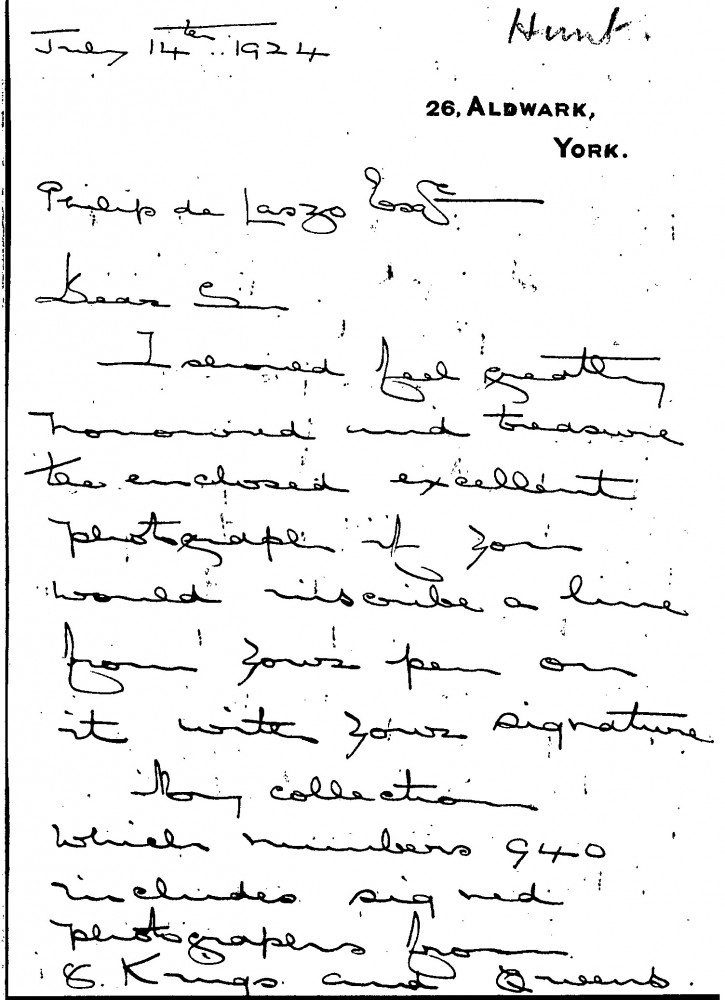 July 14th. 1924
Hunt.
26, ALDWARK,
YORK.
Philip de Laszo Esq.
Dear Sir
I should feel greatly
honoured and treasure
the enclosed excellent
photograph if you
would inscribe a line
from your pen on
it with your signature
My collection
which numbers 940
includes signed
photographs from
8. Kings and Queens.